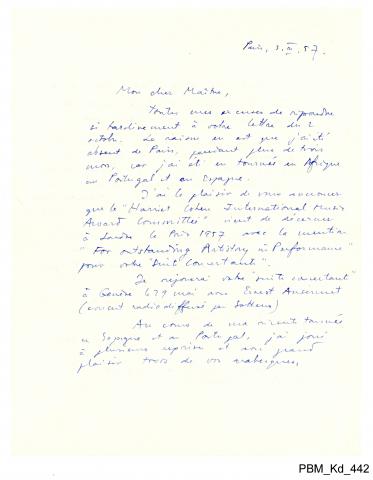 Paris, 3. III. 57.
Mon cher Maître,
Toutes mes excuses de répondre
si tardivement à votre lettre du 2
octobre. La raison en est que j'ai été
absent de Paris, pendant plus de trois
mois, car j'ai été en tournée en Afrique
au Portugal et en Espagne.
J'ai le plaisir de vous annoncer
que le "Harriet Cohen International Music
Award Committee" vient de décerner
à Londres le Prix 1957 avec la mention
"For outstanding Artistry in Performance"
pour votre "Suit Concertant".
Je rejouerai votre "suite concertant"
à Genève le 29 mai avec Ernest Ansermet
(concert radiodiffusé par Sottens)
Au cours de ma récente tournée
en Espagne et au Portugal, j'ai joué
à plusieurs reprises et avec grand
plaisir trois de vos arabesques,
PBM_Kd_442